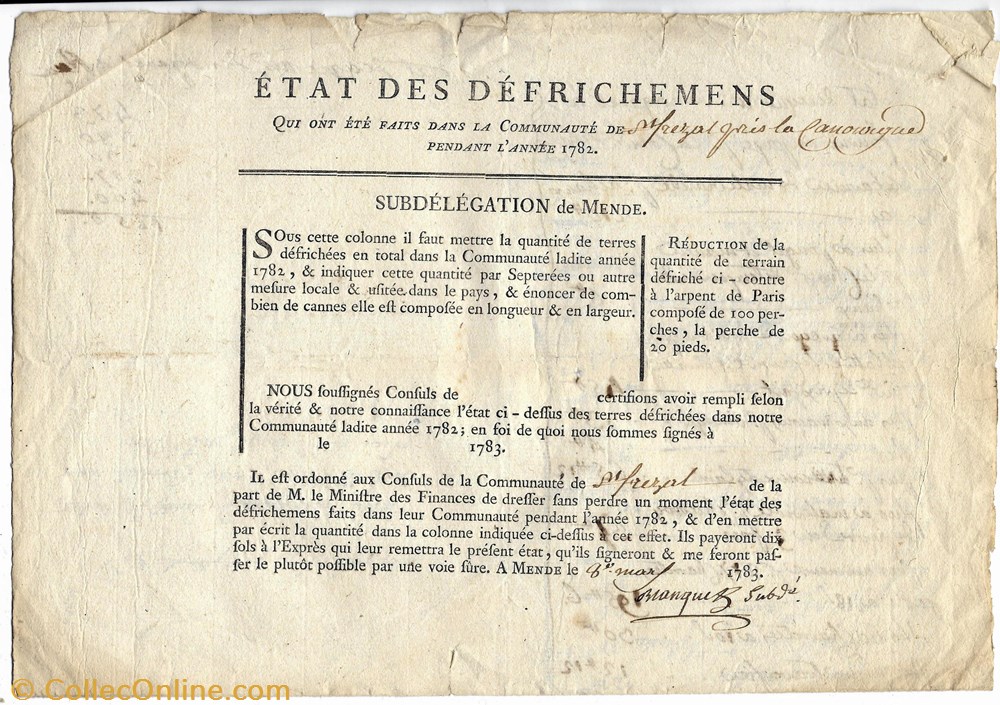 ÉTAT DES DÉFRICHEMENS
QUI ONT ÉTÉ FAITS DANS LA COMMUNAUTÉ DE St frezal près la Canourgue
PENDANT L'ANNÉE 1782.
SUBDÉLÉGATION de MENDE.
SOus cette colonne il faut mettre la quantité de terres
défrichées en total dans la Communauté ladite année
1782, & indiquer cette quantité par Septerées ou autre
mesure locale & usitée dans le pays, & énoncer de com-
bien de cannes elle est composée en longueur & en largeur.
RÉDUCTION de la
quantité de terrain
défriché ci-contre
à l'arpent de Paris
composé de 100 per-
ches, la perche de
20 pieds.
NOUS soussignés Consuls de certifions avoir rempli selon
la vérité & notre connaissance l'état ci-dessus des terres défrichées dans notre
Communauté ladite année 1782; en foi de quoi nous sommes signés à
le 1783.
IL est ordonné aux Consuls de la Communauté de St frezal de la
part de M. le Ministre des Finances de dresser sans perdre un moment l'état des
défrichemens faits dans leur Communauté pendant l'année 1782, & d'en mettre
par écrit la quantité dans la colonne indiquée ci-dessus à cet effet. Ils payeront dix
sols à l'Exprès qui leur remettra le présent état, qu'ils signeront & me feront pas-
ser le plutôt possible par une voie sûre. A MENDE le 8e mars 1783.
Subdé.
© CollecOnline.com